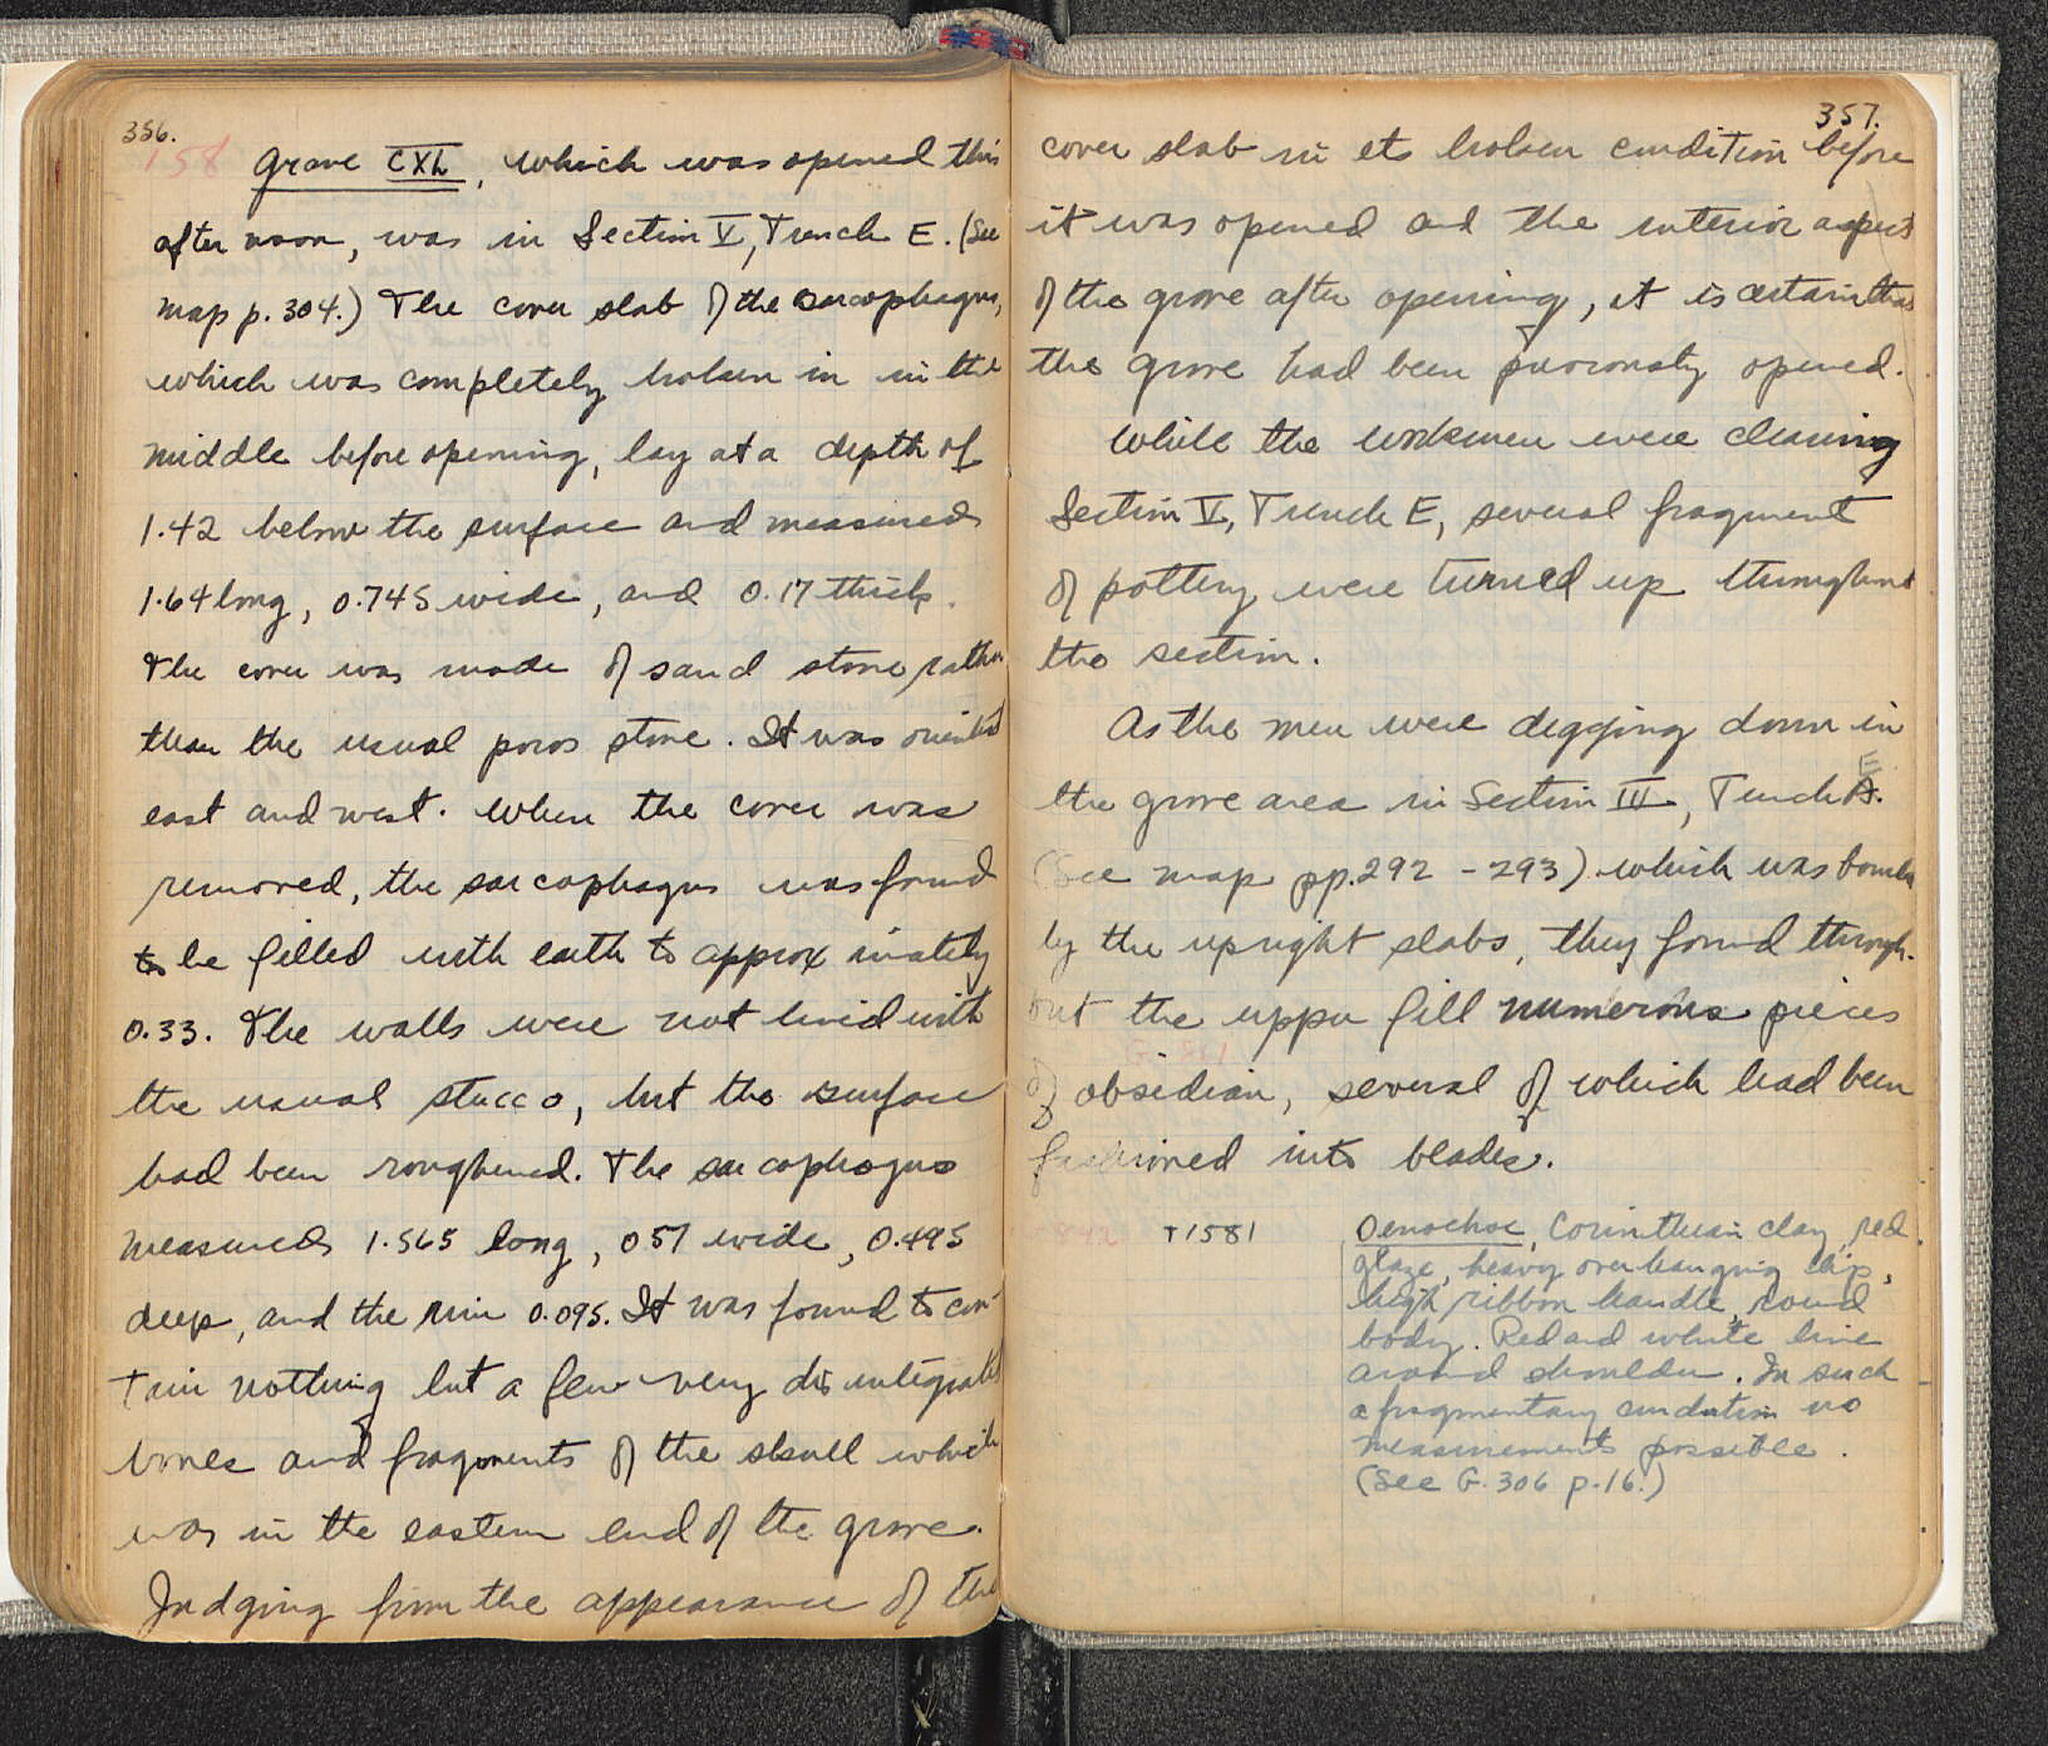 356.
158
Grave CXL, which was opened this
after noon, was in Section V, Trench E. (See
map p. 304.) The cover slab of the sarcophagus,
which was completely broken in in the
middle before opening, lay at a depth of
1.42 below the surface and measured
1.64 long, 0.745 wide, and 0.17 thick.
The cover was made of sand stone rather
than the usual poros stone. It was oriented
east and west. When the cover was
removed, the sarcophagus was found
to be filled with earth to approximately
0.33. The walls were not lined with
the usual stucco, but the surface
had been roughened. The sarcophagus
measured 1.565 long, 0.57 wide, 0.495
deep, and the rim 0.095. It was found to con-
tain nothing but a few very disintegrated
bones and fragments of the skull which
was in the eastern end of the grave.
Judging from the appearance of the
357.
cover slab in its broken condition before
it was opened and the interior aspect
of the grave after opening, it is certain that
the grave had been previously opened.
While the workmen were clearing
Section V, Trench E, several fragment
of pottery were turned up throughout
the section.
As the men were digging down in
E
the grave area in Section III, Trench A.
(See map pp. 292 - 293) which was bound
by the upright slabs, they found through-
out the upper fill numerous pieces
of obsidian, several of which had been
fashioned into blades.
T1581 Oenochoe, Corinthian clay, red
glaze, heavy overhanging lip,
high ribbon handle, round
body. Red and white line
around shoulder. In such
a fragmentary condition no
measurements possible.
(See G. 306 p. 16.)